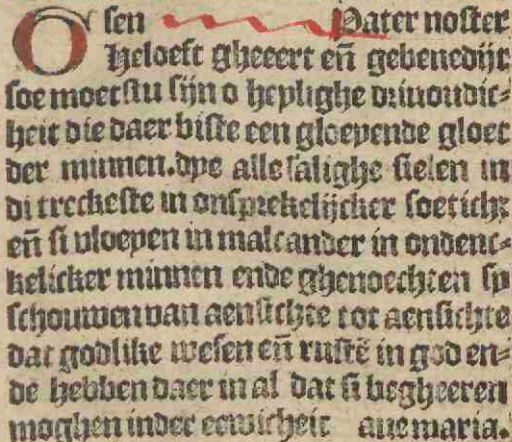 sen Pater noster
O Gheloeft gheeert eñ gebenedijt
soe moetstu sijn o heylighe driuoudic⸗
heit die daer biste een gloeyende gloet
der minnen. dye alle salighe sielen in
di treckeste in onsprekelijcker soeticht
eñ si vloeyen in malcander in ondenc⸗
kelicker minnen ende ghenoechten sy
schouwen van aensichte tot aensichte
dat godlike wesen eñ rustē in god en⸗
de hebben daer in al dat si begheeren
moghen inder eewicheit aue maria.